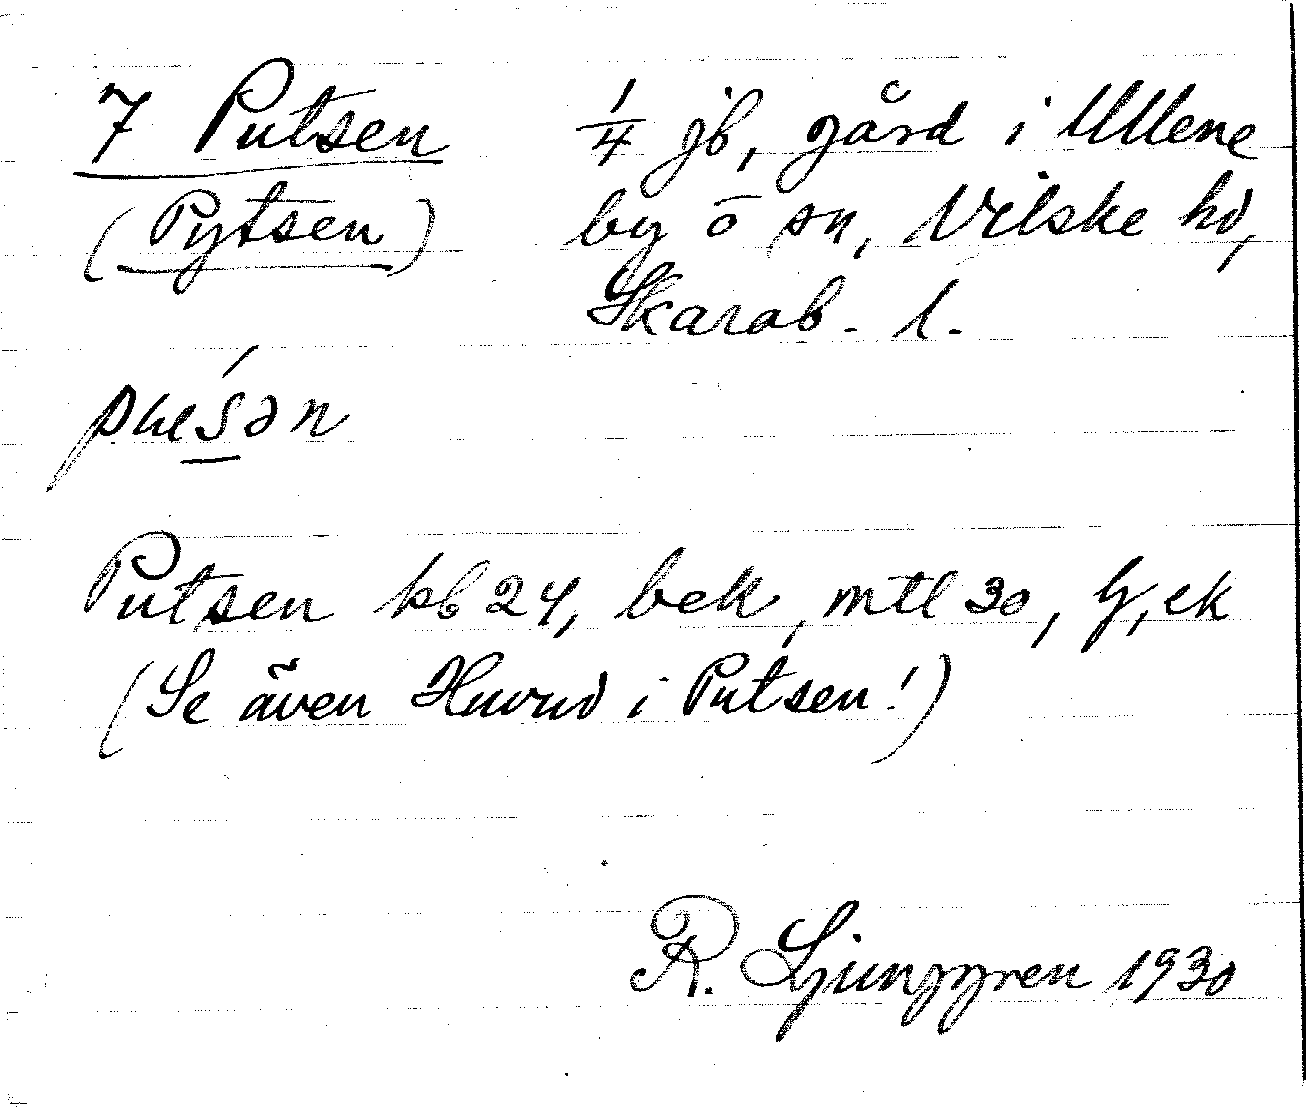 7 Putsen 1/4 jb, gård i Ullene
(Pytsen) by o sn, Vilske hd,
Skarab. l.
Putsen kb 24, bek, mtl 30, lj, ek
(Se även Huvud i Putsen!)
R. Ljunggren 1930